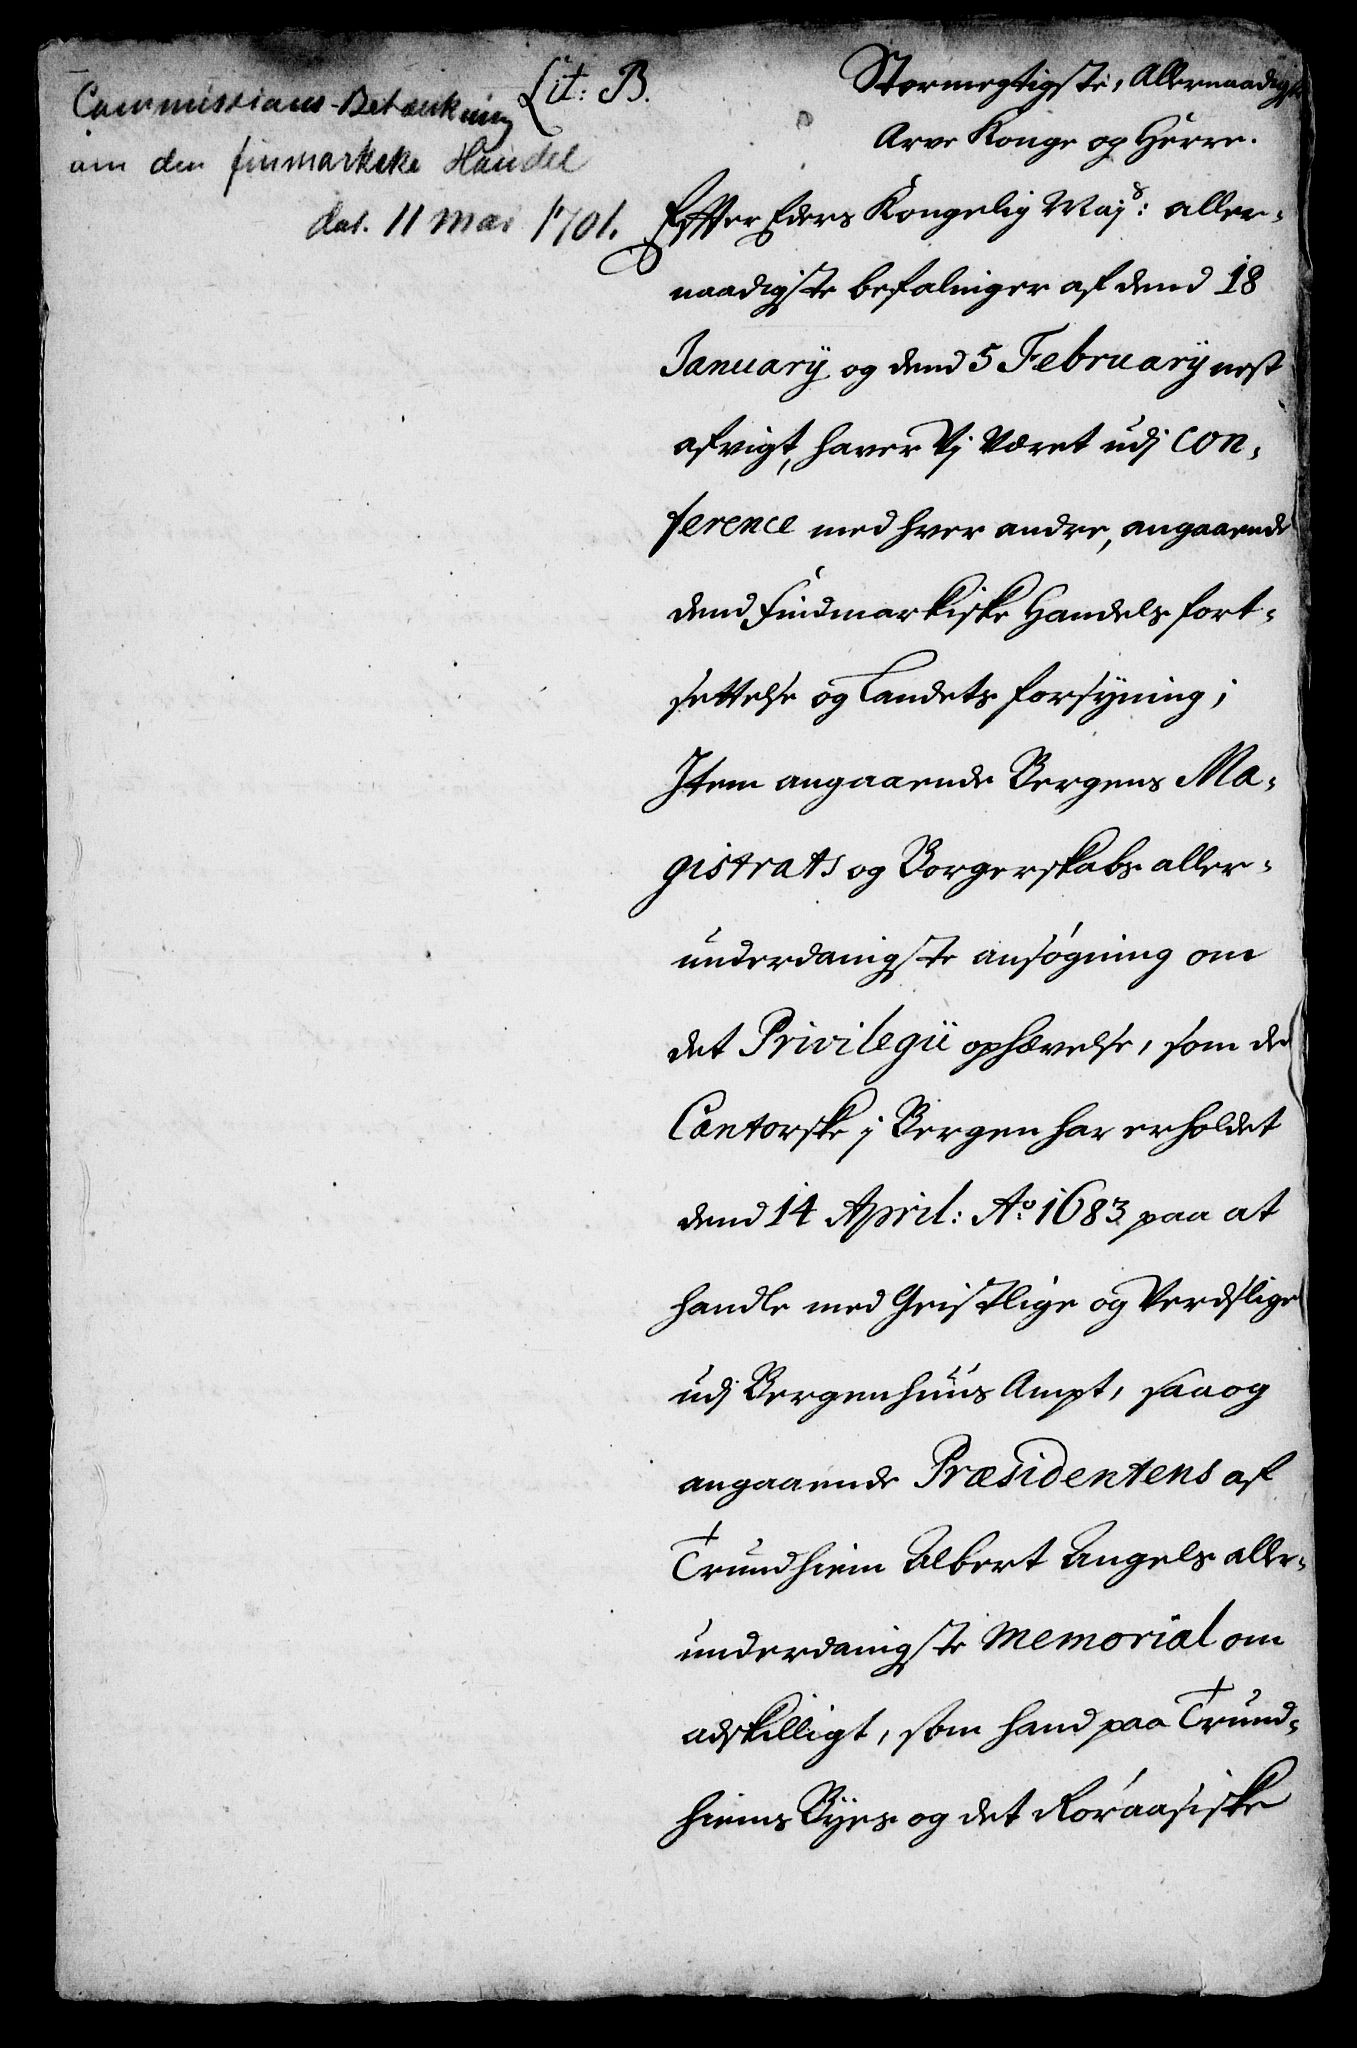 Lit: B.
Commissions-Betænkning
om den finmarkske Handel
dat. 11 mai 1701.
Stormegtigste, Allernaadigste
Arve Konge og Herre.
Effter Eders Kongelig Majs: aller-
naadigste befalinger af dend 18
Januarÿ og dend 5 Februarÿ nest
afvigt, haver Vj Været udj Con-
ference med hver andre, angaaende
dend Findmarkiske Handels fort-
settelse og Landets forsÿning;
Item angaaende Bergens Ma-
gistrats og Borgerskabs aller-
underdanigste ansøgning om
det Privilegii ophævelse, som de
Contorske j Bergen har erholdet
dend 14 April: Ao: 1683 paa at
handle med Geistlige og Verdslige
udj Bergenhuus Ampt, saa og
angaaende Præsidentens af
Trundhiem Albert Angels aller-
underdanigste Memorial om
adskilligt, som hand paa Trund-
hiems Bÿes og det Roraasiske